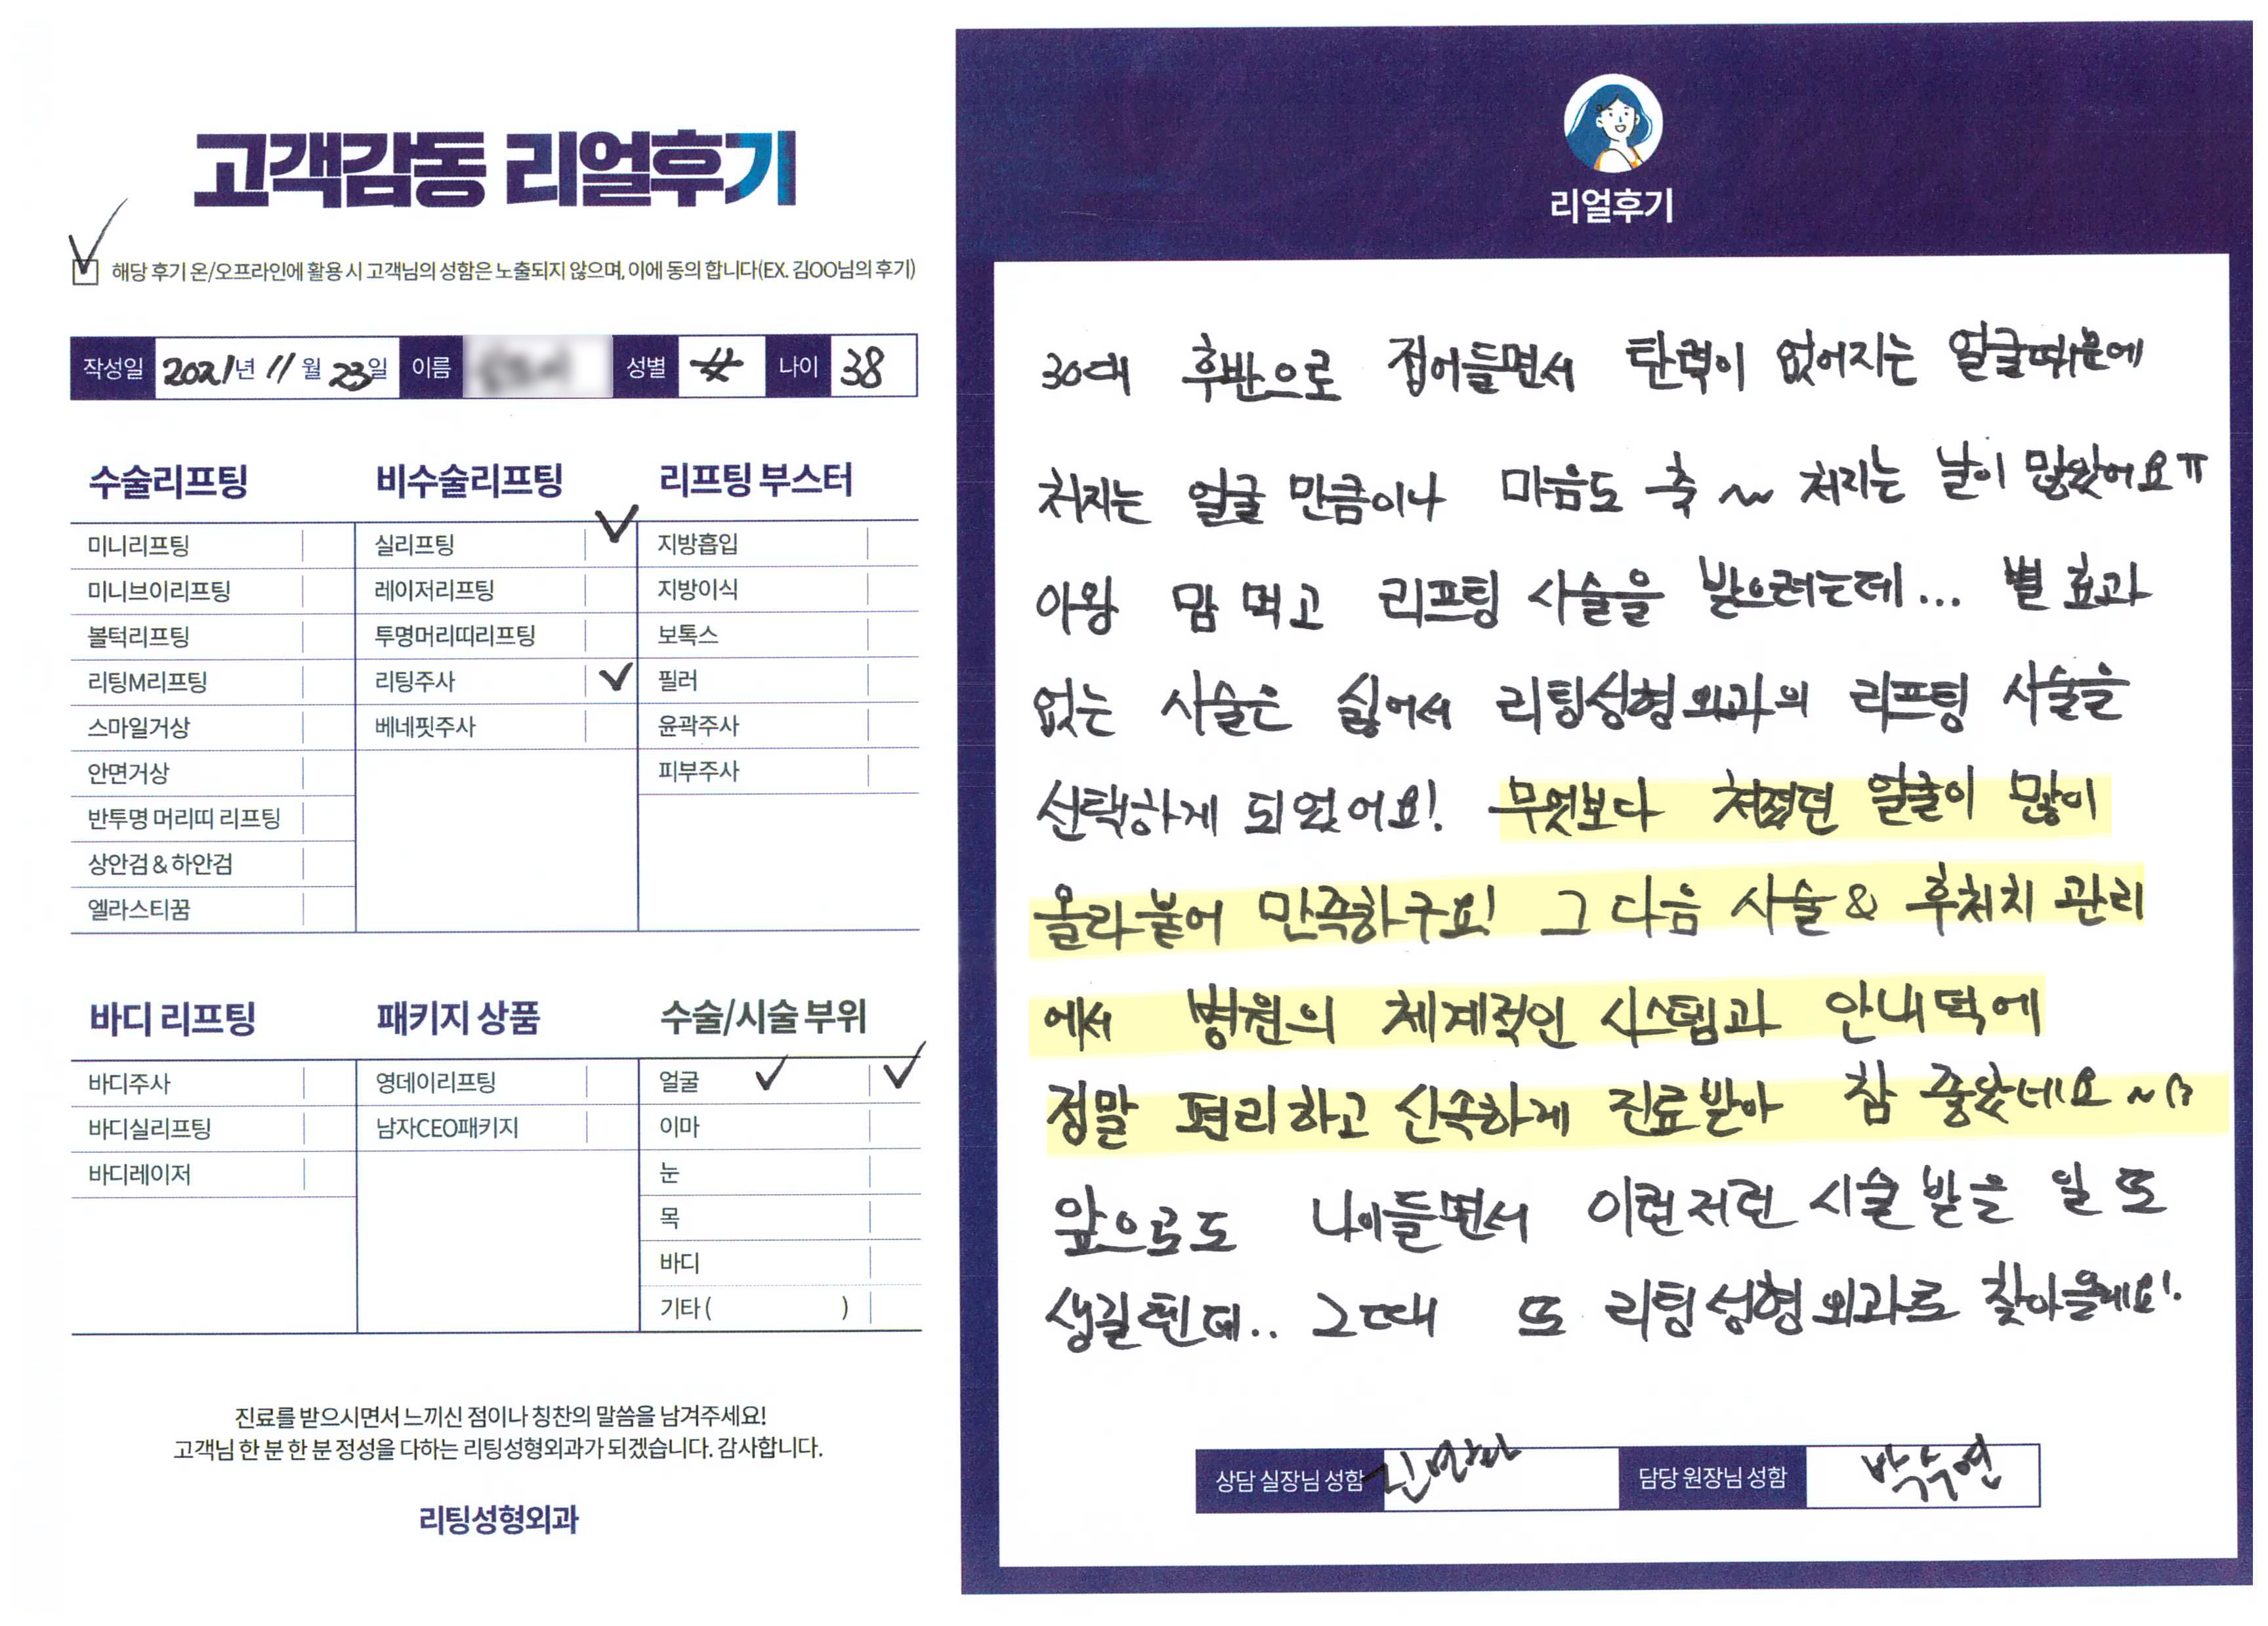 고객감동 리얼후기
해당 후기 온/오프라인에 활용 시 고객님의 성함은 노출되지 않으며, 이에 동의 합니다(EX. 김OO님의 후기)
작성일 2021년 11월 23일 이름 성별 女 나이 38
수술리프팅
미니리프팅
미니브이리프팅
볼턱리프팅
리팅M리프팅
스마일거상
안면거상
반투명 머리띠 리프팅
상안검 & 하안검
엘라스티꿈
비수술리프팅
실리프팅
레이저리프팅
투명머리띠리프팅
리팅주사
베네핏주사
리프팅 부스터
지방흡입
지방이식
보톡스
필러
윤곽주사
피부주사
바디 리프팅
바디주사
바디실리프팅
바디레이저
패키지 상품
영데이리프팅
남자CEO패키지
수술/시술 부위
얼굴
이마
눈
목
바디
기타 ( )
진료를 받으시면서 느끼신 점이나 칭찬의 말씀을 남겨주세요!
고객님 한 분 한 분 정성을 다하는 리팅성형외과가 되겠습니다. 감사합니다.
리팅성형외과
리얼후기
30대 후반으로 접어들면서 탄력이 없어지는 얼굴때문에
처지는 얼굴 만큼이나 마음도 축 ~ 처지는 날이 많았어요ㅠ
이왕 맘 먹고 리프팅 시술을 받으려는데... 별 효과
없는 시술은 싫어서 리팅성형외과의 리프팅 시술을
선택하게 되었어요! 무엇보다 처졌던 얼굴이 많이
올라붙어 만족하구요! 그 다음 시술 & 후처치 관리
에서 병원의 체계적인 시스템과 안내 덕에
정말 편리하고 신속하게 진료받아 참 좋았네요 ~^^
앞으로도 나이들면서 이런저런 시술 받을 일 또
생길텐데.. 그때 또 리팅성형외과로 찾아올게요!
상담 실장님 성함
담당 원장님 성함 박수연